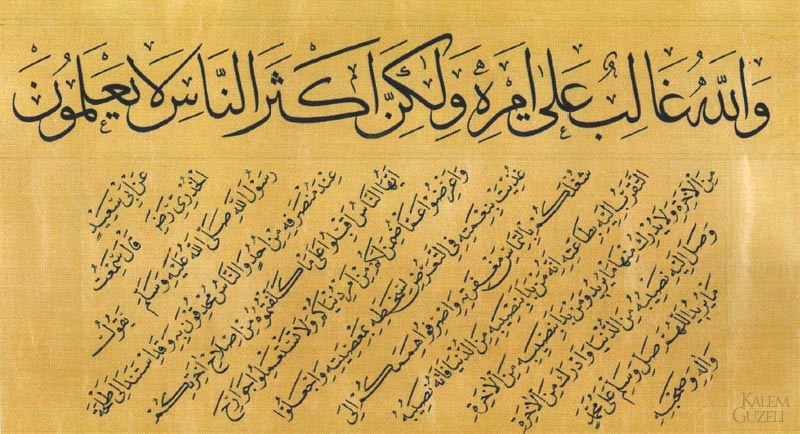 وَاللّٰهُ غَالِبٌ عَلٰى اَمْرِهٖ وَلٰكِنَّ اَكْثَرَ النَّاسِ لَا يَعْلَمُونَ
عن ابى سعيد
الخدرى رضى قال سمعت
رسول الله صلى الله عليه وسلم يقول
عند منصرفه من احد والناس محدقون به وقد استند الى طلحة
ايها الناس اقبلوا على ما كلفتموه من اصلاح اخرتكم
واعرضوا عما ضمن لكم من امر دنياكم ولا تستعملوا جوارح
غذيت بنعمته فى التعرض لسخطه بمعصيته واجعلوا
شغلكم بالتماس مغفرته واصرفوا هممكم الى
التقرب اليه بطاعته انه من بدأ بنصيبه من الدنيا فاته نصيبه
من الاخرة ولا يدرك منها ما يريد ومن بدأ بنصيبه من الاخرة
وصل اليه نصيبه من الدنيا وادرك من الاخرة
ما يريد اللهم صل وسلم على محمد
واله وصحبه
KALEM GUZELI